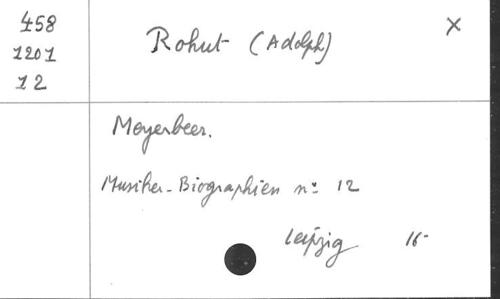 458
1201
12
Rohut (Adolph)
X
Meyerbeer.
Musiker-Biographien nº 12
Leipzig 16-